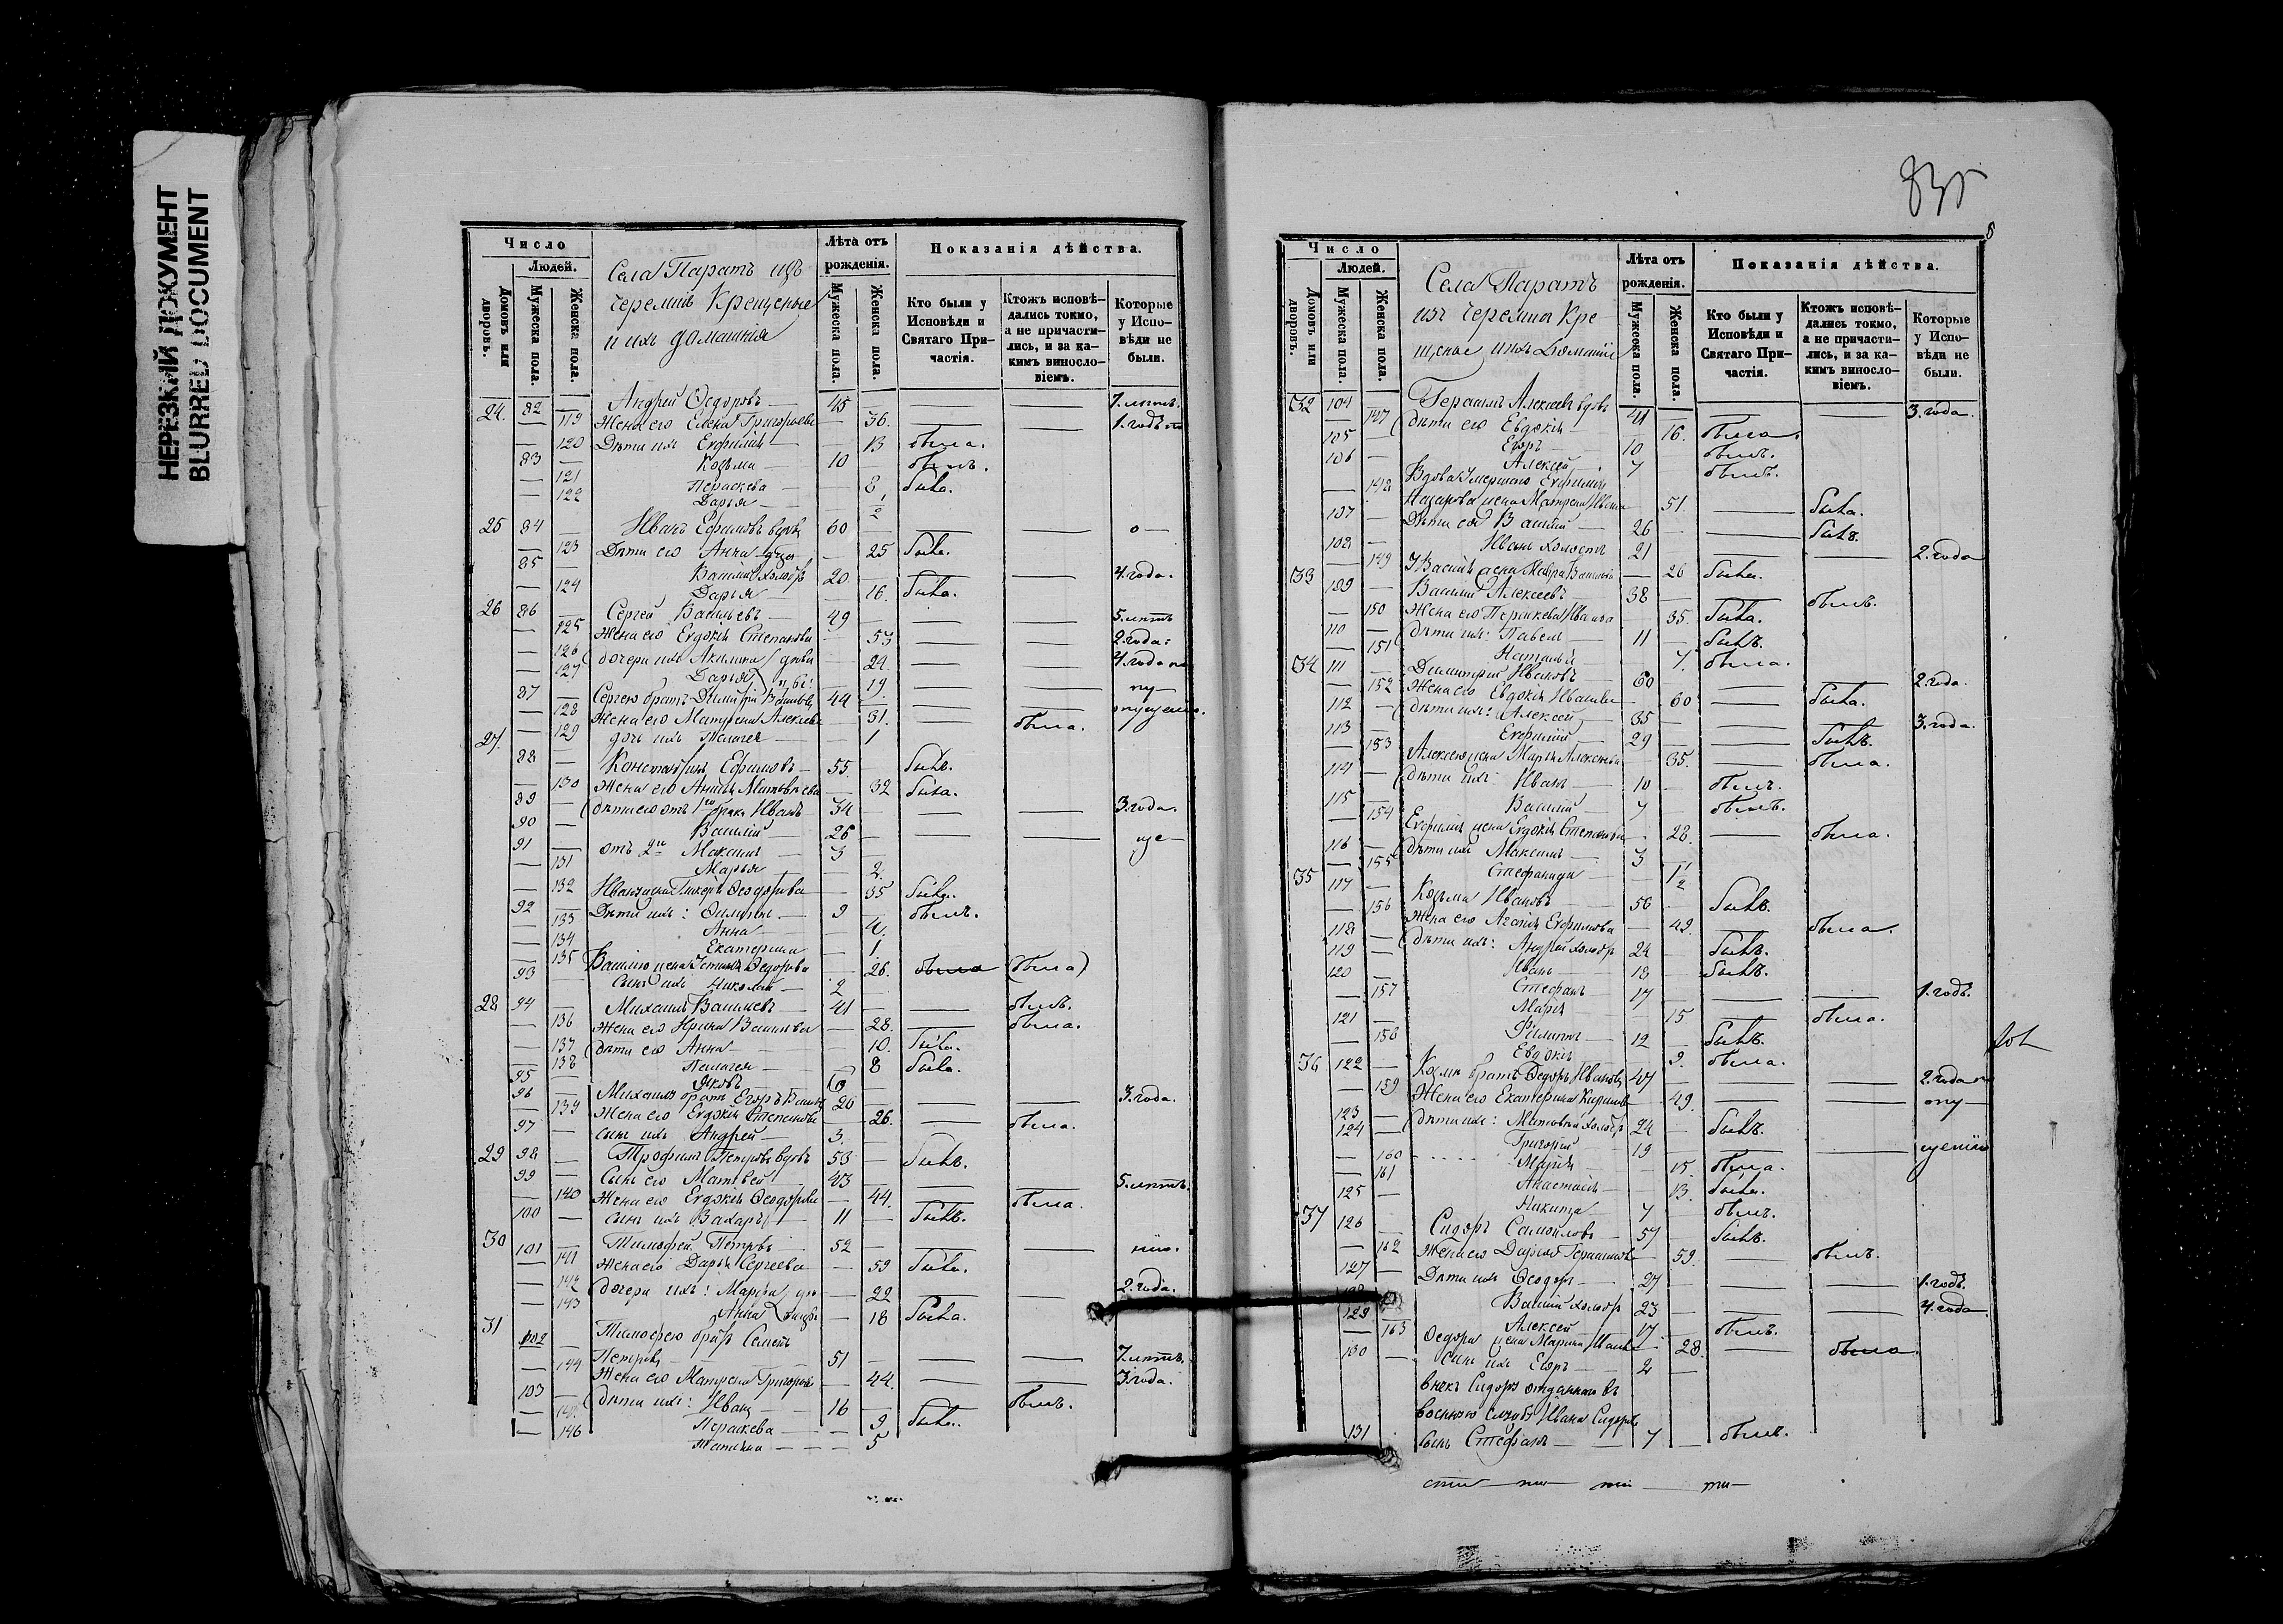 НЕРЕЗКИЙ ДОКУМЕНТ
BLURRED DOCUMENT
Число
Людей.
Домовъ или дворовъ.
Мужеска пола.
Женска пола.
Села Паратъ изъ
черемисъ Крещеные
и ихъ домашнія
Лѣта отъ рожденія.
Мужеска пола.
Женска пола.
Показанія дѣйства.
Кто были у Исповѣди и Святаго Причастія.
Ктожъ исповѣдались токмо, а не причастились, и за какимъ винословіемъ.
Которые у Исповѣди не были.
24. 82 Андрей Ѳедоровъ 45 7. лѣтъ.
119 Жена его Елена Григорьева 36. 1. годъ
120 Дѣти ихъ Евфимія 13 была.
83 Козьма 10 былъ.
121 Параскева 8 была.
122 Дарья 1/2
25 84 Иванъ Ефимовъ вдовъ 60
123 Дѣти его Анна 25 была.
85 Василій холостъ 20 4. года.
124 Дарья 16. была.
26 86 Сергей Васильевъ 49 5. лѣтъ
125 Жена его Евдокія Степанова 53 2. года.
126 дочери ихъ Акилина 24. 4. года
127 Дарья 19
87 Сергею братъ Димитрій Васильевъ 44
128 Жена его Матрена Алексеева 31. опущенію.
129 дочь ихъ Пелагея 1 была.
27. 88 Константинъ Ефимовъ 55. былъ.
130 Жена его Анисья Матвеева 32 была.
89 дѣти его отъ 1го брака Иванъ 34 3. года.
90 Василій 26
91 отъ 2го Максимъ 3
131 Марья 2.
132 Ивану жена Ѳеодорова 35 была.
92 133 Дѣти ихъ: 9 былъ.
134 Анна 4.
135 Екатерина 1.
Василію жена Устинья Ѳедорова 26. была (была)
93 Сынъ ихъ Николай 2
28 94 Михаилъ Васильевъ 41 былъ.
136 Жена его Ирина Васильева 28. была.
137 Дѣти его Анна 10. была.
138 Пелагея 8 была.
95 Яковъ 6
96 Михаилу братъ Егоръ Васильевъ 26 3. года.
139 Жена его Евдокія Степанова 26. была.
97 сынъ ихъ Андрей 3.
29 98 Трофимъ Петровъ вдовъ 53 былъ.
99 Сынъ его Матвей 43 5. лѣтъ.
140 Жена его Евдокія Ѳеодорова 44. была
100 Сынъ ихъ Захаръ 11 былъ.
30 101 Тимофей Петровъ 52
141 Жена его Дарья Сергеева 59 была.
142 дочери ихъ: Марья 22 2. года.
143 Анна 18 была.
31 102 Тимофею братъ Семенъ
Петровъ 51 7. лѣтъ.
144 Жена его Матрена Григорьева 44. 3. года.
103 дѣти ихъ: Иванъ 16 былъ.
Параскева 9 была.
146 Татьяна 5
835
Число
Людей.
Домовъ или дворовъ.
Мужеска пола.
Женска пола.
Села Паратъ
изъ черемисъ Кре
щеные и ихъ домашніе
Лѣта отъ рожденія.
Мужеска пола.
Женска пола.
Показанія дѣйства.
Кто были у Исповѣди и Святаго Причастія.
Ктожъ исповѣдались токмо, а не причастились, и за какимъ винословіемъ.
Которые у Исповѣди не были.
32 104 Герасимъ Алексеевъ вдовъ 41 3. года.
147 Дѣти его Евдокія 16. была.
105 Егоръ 10 былъ.
106 Алексей 7 былъ.
148 Вдова умершаго Евфимія
Назарова жена Матрена Иванова 51. была.
107 Дѣти ея Василій 26 былъ.
108 Иванъ холостъ 21 2. года
149 У Василія жена Васильева 26 была.
33 109 Василій Алексеевъ 38 былъ.
150 Жена его Параскева Иванова 35. была.
110 Дѣти ихъ: Павелъ 11 былъ.
151 Наталья 7. была.
34 111 Димитрій Ивановъ 60 2. года.
152 Жена его Евдокія Иванова 60 была.
112 Дѣти ихъ: Алексей 35 3. года.
113 Евфимій 29 былъ.
153 Алексею жена Марья Алексеева 35. была.
114 Дѣти ихъ: Иванъ 10 былъ.
115 Василій 7 былъ.
154 Евфимію жена Евдокія Степанова 28. была.
116 Дѣти ихъ Максимъ 3
155 Стефанида 1 1/2
35 117 Козьма Ивановъ 56 былъ.
156 Жена его Агафія Евфимова 49. была.
118 Дѣти ихъ: Андрей холостъ 24 былъ.
119 Иванъ 19 былъ.
120 Стефанъ 17 1. годъ.
157 Марія 15 была.
121 Филиппъ 12 былъ.
158 Евдокія 9. была.
36 122 Козьмѣ братъ Ѳедоръ Ивановъ 47 2. года
159 Жена его Екатерина Кирилова 49. опу
123 Дѣти ихъ: Матвей холостъ 24 былъ.
124 Григорій 19 щенію
160 Марія 15. была.
161 Анастасія 13. была.
125 Никита 7 былъ.
37 126 Сидоръ Самойловъ 57 былъ.
162 Жена его Дарья Герасимова 59. былъ.
127 Дѣти ихъ Ѳеодоръ 27 1. годъ.
Василій холостъ 23 4. года
129 Алексей 17. былъ.
163 Ѳедору жена Марина Иванова 28. была
130 Сынъ ихъ Егоръ 2
внукъ Сидору отданнаго въ
военную службу Ивана Сидорова
131 Сынъ Стефанъ 7 былъ.